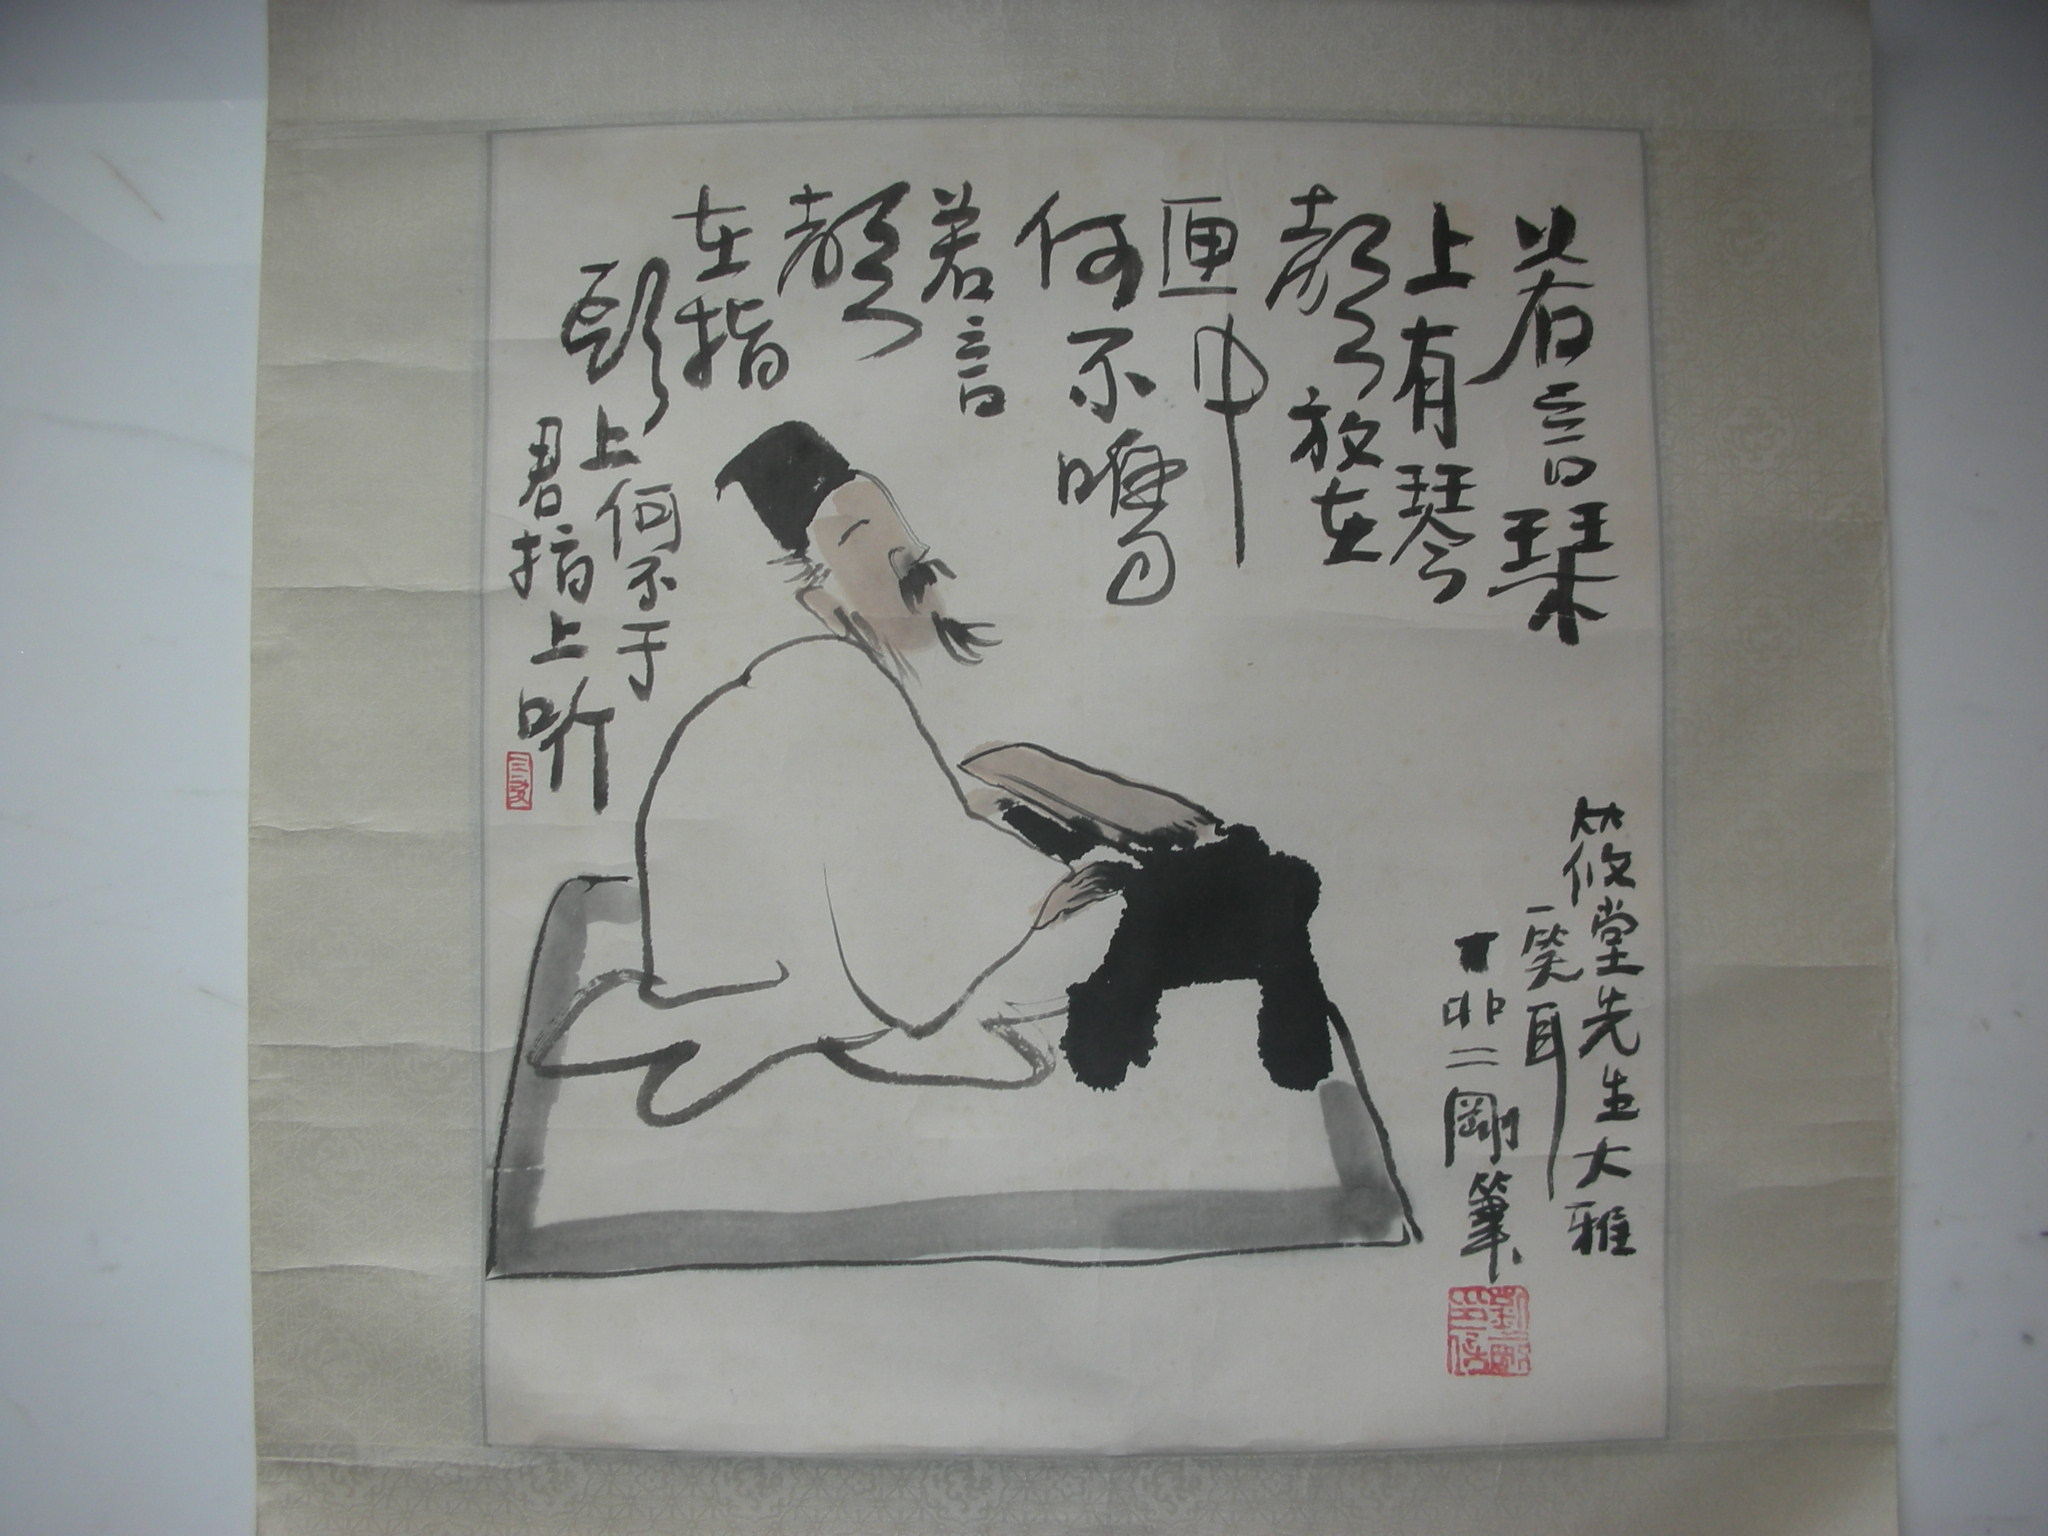 若言琹
上有琴
聲放在
匣中
何不鳴
若言
聲
在指
頭
上何不于
君指上听
筱堂先生大雅
一笑耳
丁卯二剛筆